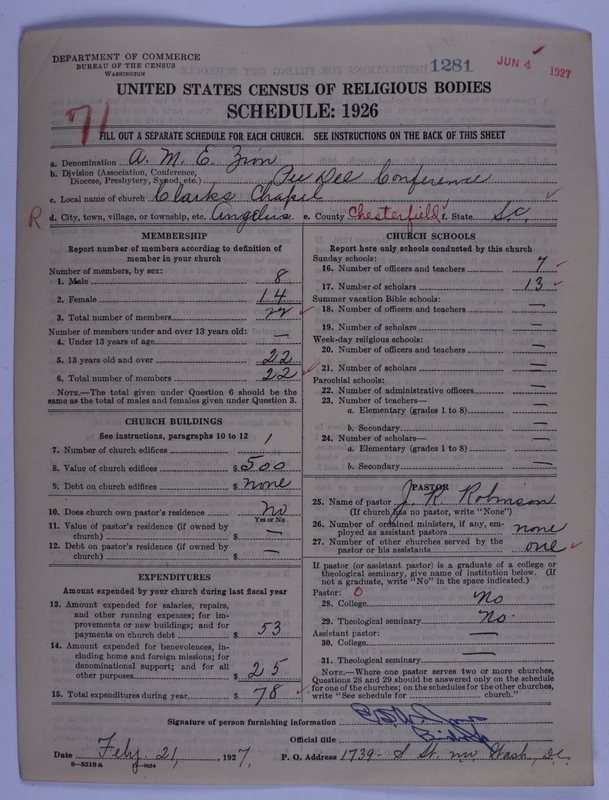 DEPARTMENT OF COMMERCE
BUREAU OF THE CENSUS
WASHINGTON
1281
JUN 4 1927
UNITED STATES CENSUS OF RELIGIOUS BODIES
SCHEDULE: 1926
71
FILL OUT A SEPARATE SCHEDULE FOR EACH CHURCH. SEE INSTRUCTIONS ON THE BACK OF THIS SHEET
a. Denomination A. M. E. Zion
b. Division (Association, Conference,
Diocese, Presbytery, Synod, etc.) Pee Dee Conference
c. Local name of church Clarks Chapel
R d. City, town, village, or township, etc. Angelus e. County Chesterfield f. State S.C.
MEMBERSHIP
Report number of members according to definition of
member in your church
Number of members, by sex:
1. Male 8
2. Female 14
3. Total number of members 22
Number of members under and over 13 years old:
4. Under 13 years of age —
5. 13 years old and over 22
6. Total number of members 22
NOTE.—The total given under Question 6 should be the
same as the total of males and females given under Question 3.
CHURCH BUILDINGS
See instructions, paragraphs 10 to 12
7. Number of church edifices 1
8. Value of church edifices $ 500
9. Debt on church edifices $ none
10. Does church own pastor's residence no
Yes or No
11. Value of pastor's residence (if owned by
church) $ —
12. Debt on pastor's residence (if owned by
church) $ —
EXPENDITURES
Amount expended by your church during last fiscal year
13. Amount expended for salaries, repairs,
and other running expenses; for im-
provements or new buildings; and for
payments on church debt $ 53
14. Amount expended for benevolences, in-
cluding home and foreign missions; for
denominational support; and for all
other purposes $ 25
15. Total expenditures during year $ 78
CHURCH SCHOOLS
Report here only schools conducted by this church
Sunday schools:
16. Number of officers and teachers 7
17. Number of scholars 13
Summer vacation Bible schools:
18. Number of officers and teachers —
19. Number of scholars —
Week-day religious schools:
20. Number of officers and teachers —
21. Number of scholars —
Parochial schools:
22. Number of administrative officers —
23. Number of teachers—
a. Elementary (grades 1 to 8) —
b. Secondary —
24. Number of scholars—
a. Elementary (grades 1 to 8) —
b. Secondary —
PASTOR
25. Name of pastor J. R. Robinson
(If church has no pastor, write "None")
26. Number of ordained ministers, if any, em-
ployed as assistant pastors none
27. Number of other churches served by the
pastor or his assistants one
If pastor (or assistant pastor) is a graduate of a college or
theological seminary, give name of institution below. (If
not a graduate, write "No" in the space indicated.)
Pastor: 0
28. College No
29. Theological seminary No.
Assistant pastor: —
30. College —
31. Theological seminary —
NOTE.—Where one pastor serves two or more churches,
Questions 28 and 29 should be answered only on the schedule
for one of the churches; on the schedules for the other churches,
write "See schedule for church."
Signature of person furnishing information
Official title Bishop
Date Feby. 21, 1927. P. O. Address 1739- S St. nw Wash, D.C.
8—5518a